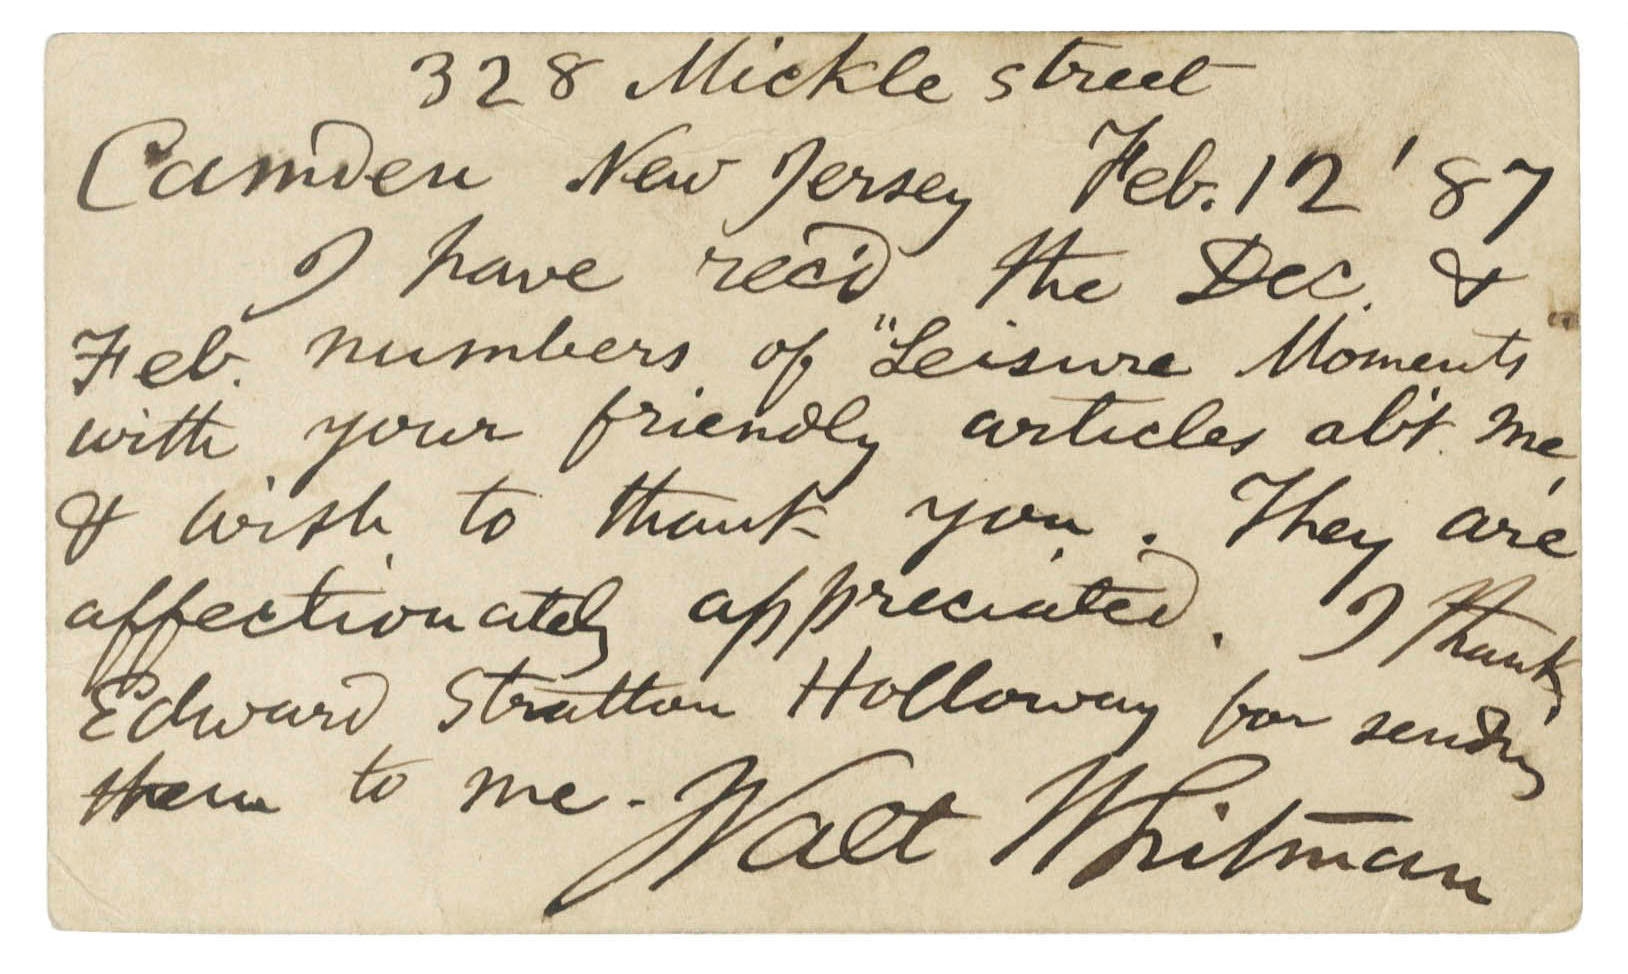 328 Mickle street
Camden New Jersey Feb. 12 '87
I have rec'd the Dec. &
Feb. numbers of "Leisure Moments
with your friendly articles ab't me,
& wish to thank you. They are
affectionately appreciated. I thank
Edward Stratton Holloway for sending
them to me. Walt Whitman